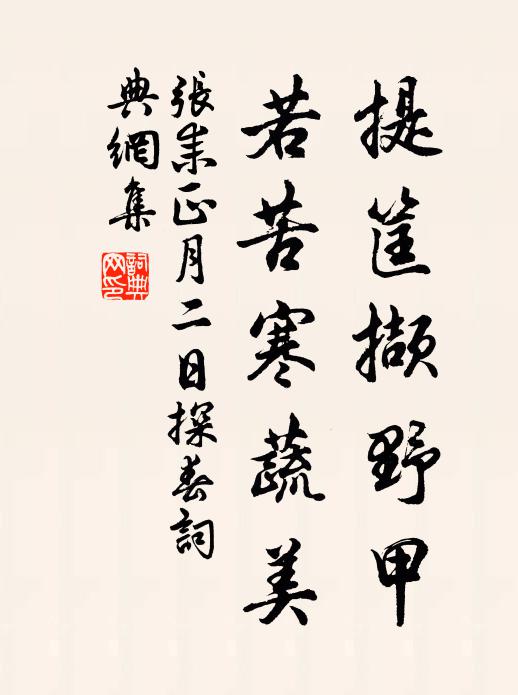 提筐擷野甲
若苦寒蔬美
張耒正月二日探春詞
典網集
詞典網印